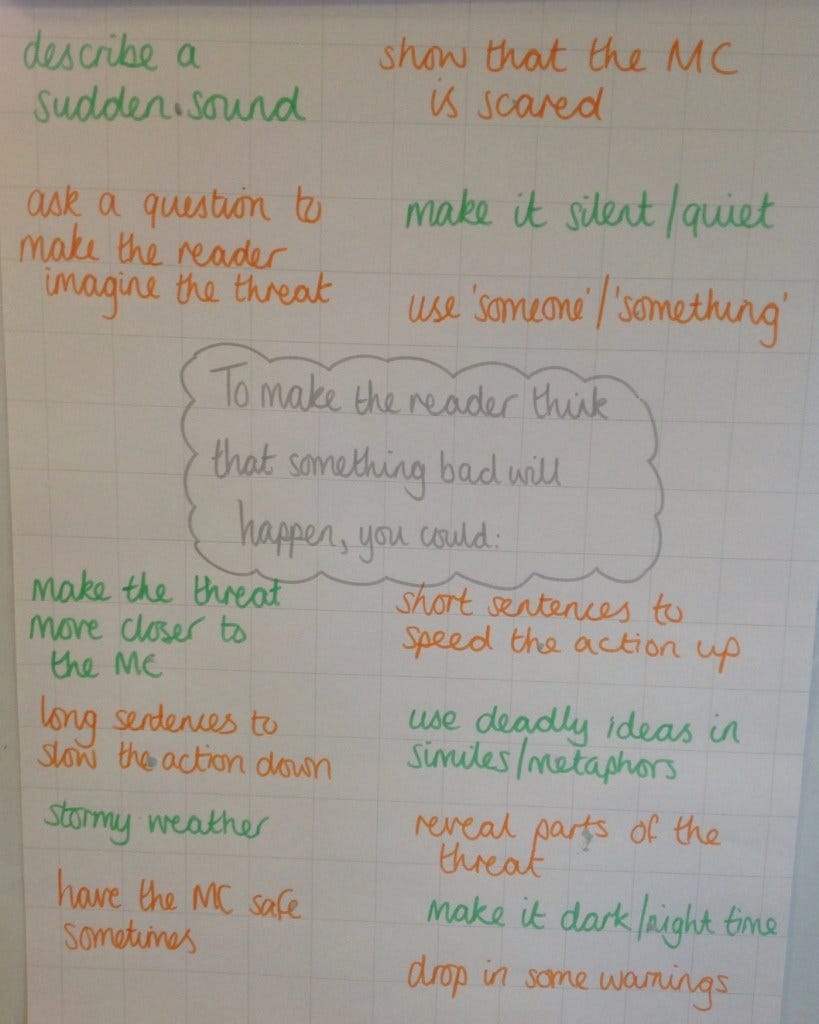 describe a
sudden sound
show that the MC
is scared
ask a question to
make the reader
imagine the threat
make it silent/quiet
use 'someone'/'something'
To make the reader think
that something bad will
happen, you could:
make the threat
move closer to
the MC
short sentences to
speed the action up
long sentences to
slow the action down
use deadly ideas in
similes/metaphors
stormy weather
reveal parts of the
threat
have the MC safe
sometimes
make it dark/night time
drop in some warnings